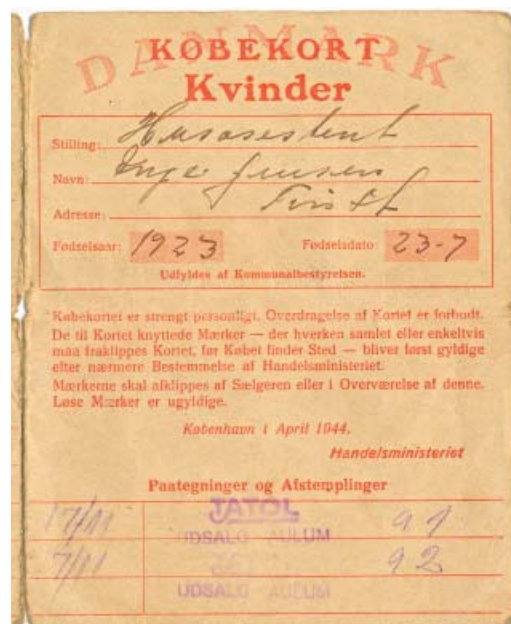 DANMARK
KØBEKORT
Kvinder
Stilling: Husassistent
Navn: Inge Jensen
Adresse:
Fødselsaar: 1923 Fødselsdato: 23-7
Udfyldes af Kommunalbestyrelsen.
Købekortet er strengt personligt. Overdragelse af Kortet er forbudt.
De til Kortet knyttede Mærker — der hverken samlet eller enkeltvis
maa fraklippes Kortet, før Købet finder Sted — bliver først gyldige
efter nærmere Bestemmelse af Handelsministeriet.
Mærkerne skal afklippes af Sælgeren eller i Overværelse af denne.
Løse Mærker er ugyldige.
København i April 1944.
Handelsministeriet
Paategninger og Afstemplinger
17/11 JATOL 91
UDSALG AULUM
7/11 92
UDSALG AULUM